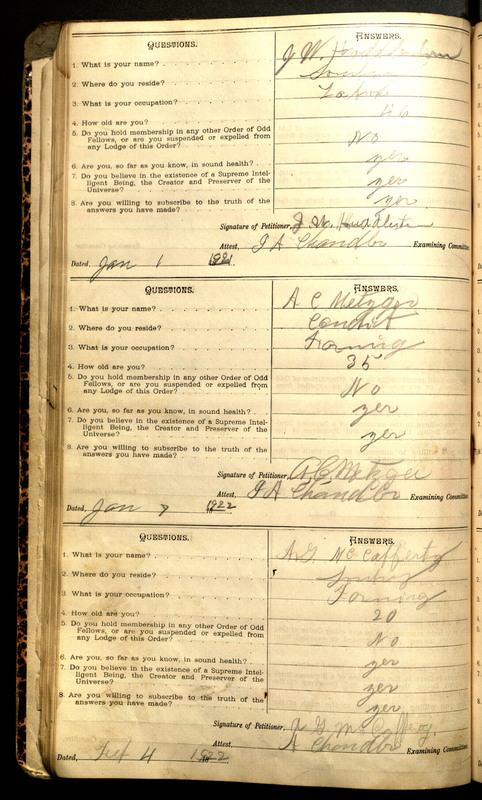 QUESTIONS. ANSWERS.
1. What is your name? J W Huddlestun
2. Where do you reside?
3. What is your occupation?
4. How old are you? 46
5. Do you hold membership in any other Order of Odd
Fellows, or are you suspended or expelled from
any Lodge of this Order? No
6. Are you, so far as you know, in sound health? yer
7. Do you believe in the existence of a Supreme Intel-
ligent Being, the Creator and Preserver of the
Universe? yer
8. Are you willing to subscribe to the truth of the
answers you have made? yer
Signature of Petitioner, J. W. Huddlestun
Attest, J A Chandler Examining Committee
Dated, Jan 1 1921
QUESTIONS. ANSWERS.
1. What is your name? A C Metzger
2. Where do you reside? Condit
3. What is your occupation? Farming
4. How old are you? 35
5. Do you hold membership in any other Order of Odd
Fellows, or are you suspended or expelled from
any Lodge of this Order? No
6. Are you, so far as you know, in sound health? yer
7. Do you believe in the existence of a Supreme Intel-
ligent Being, the Creator and Preserver of the
Universe? yer
8. Are you willing to subscribe to the truth of the
answers you have made?
Signature of Petitioner, A C Metzger
Attest, J A Chandler Examining Committee
Dated, Jan 7 1922
QUESTIONS. ANSWERS.
1. What is your name? A. G. McCafferty
2. Where do you reside?
3. What is your occupation? Farming
4. How old are you? 20
5. Do you hold membership in any other Order of Odd
Fellows, or are you suspended or expelled from
any Lodge of this Order? No
6. Are you, so far as you know, in sound health? yer
7. Do you believe in the existence of a Supreme Intel-
ligent Being, the Creator and Preserver of the
Universe? yer
8. Are you willing to subscribe to the truth of the
answers you have made? yer
Signature of Petitioner, A G McCafferty
Attest, A Chandler Examining Committee
Dated, 4 1922